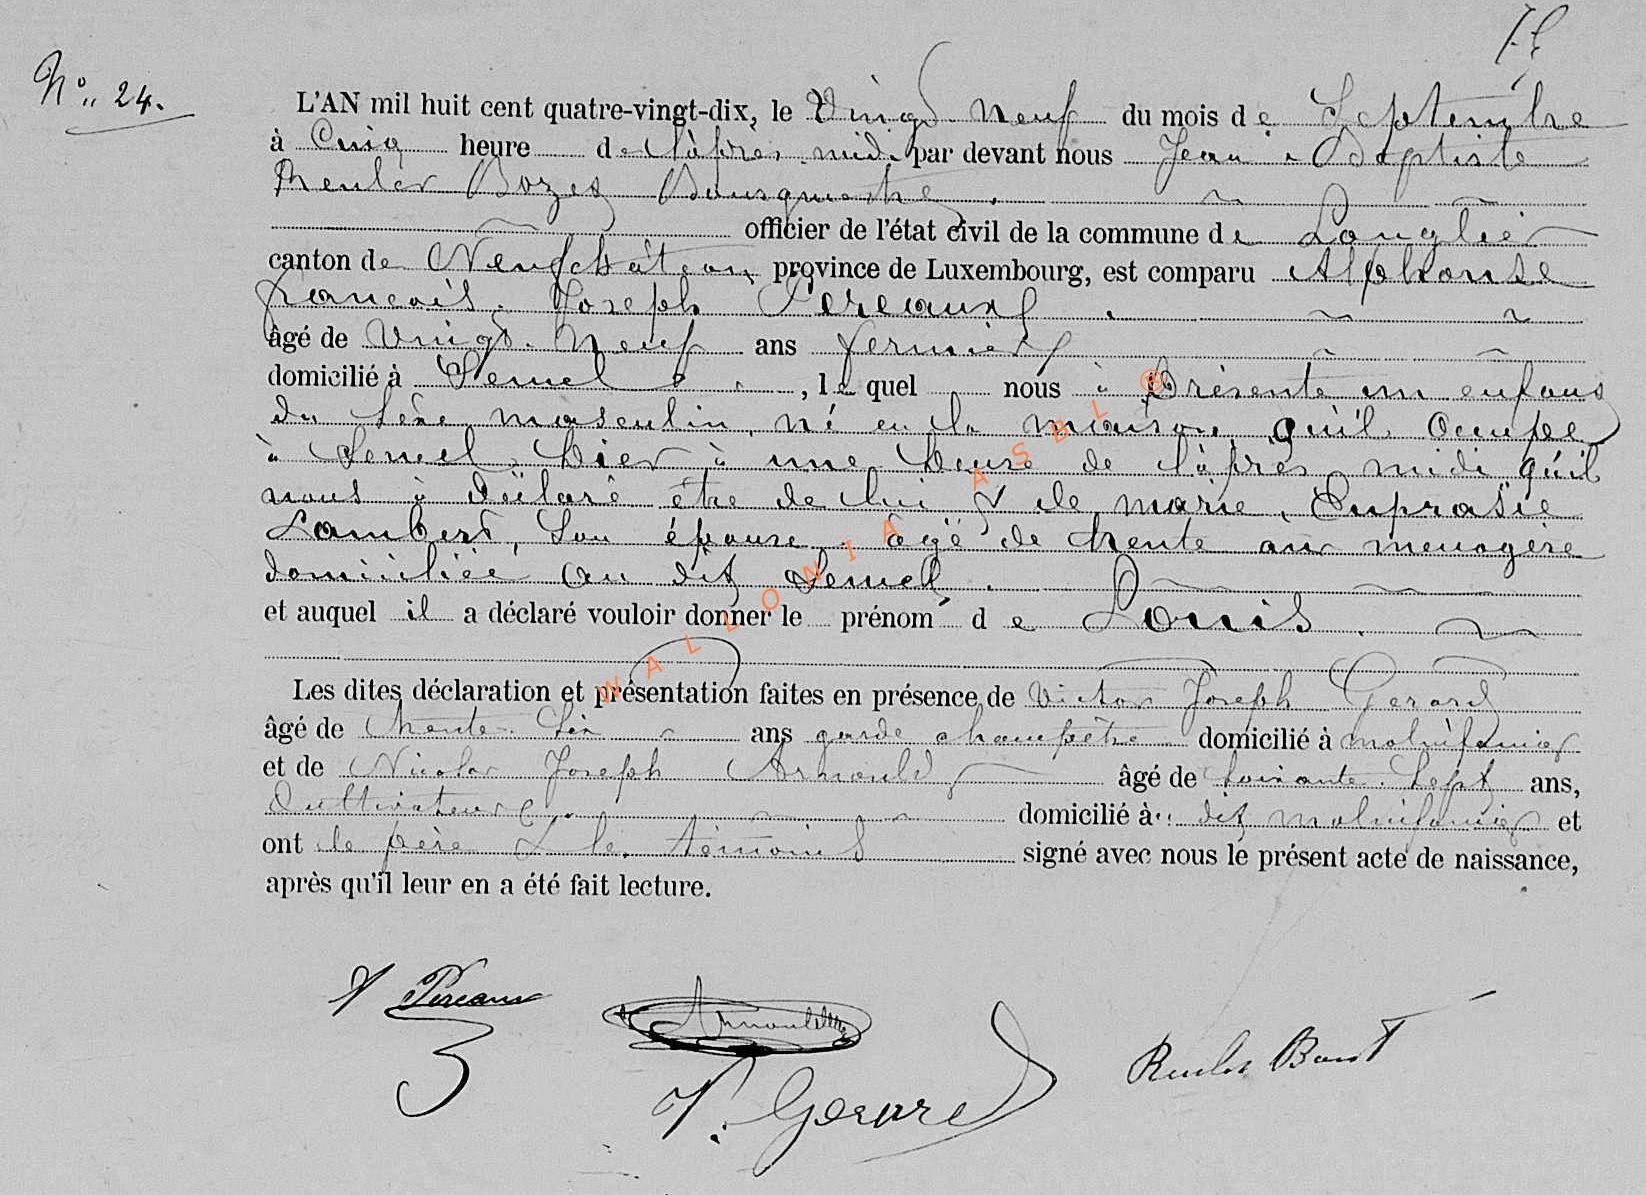 N° 24.
L'AN mil huit cent quatre-vingt-dix, le Vingt Neuf du mois de Septembre
à Cinq heure de l'après midi par devant nous Jean Baptiste
Reuler Bozet Bourgmestre
officier de l'état civil de la commune de Longlier
canton de Neufchâteau, province de Luxembourg, est comparu Alphonse
francois Joseph Pereaux
âgé de Vingt Neuf ans fermier
domicilié à Semel, le quel nous à Présenté un enfant
du sexe masculin, né en la maison, qu'il occupe
à Semel, hier à une heure de l'après midi qu'il
nous à déclaré être de lui & de marie, Euprasie
Lambert, son épouse, agé de trente ans menagère
domiciliée au dit Semel.
et auquel il a déclaré vouloir donner le prénom de Louis.
Les dites déclaration et présentation faites en présence de Victor Joseph Gerard
âgé de trente Six ans garde champêtre domicilié à molinfaing
et de Nicolas Joseph Arnould âgé de soixante Sept ans,
Cultivateur domicilié à dit molinfaing et
ont le père & le témoins signé avec nous le présent acte de naissance,
après qu'il leur en a été fait lecture.
Pereaux
Arnould
V. Gerard
WALLONIA ASBL ®